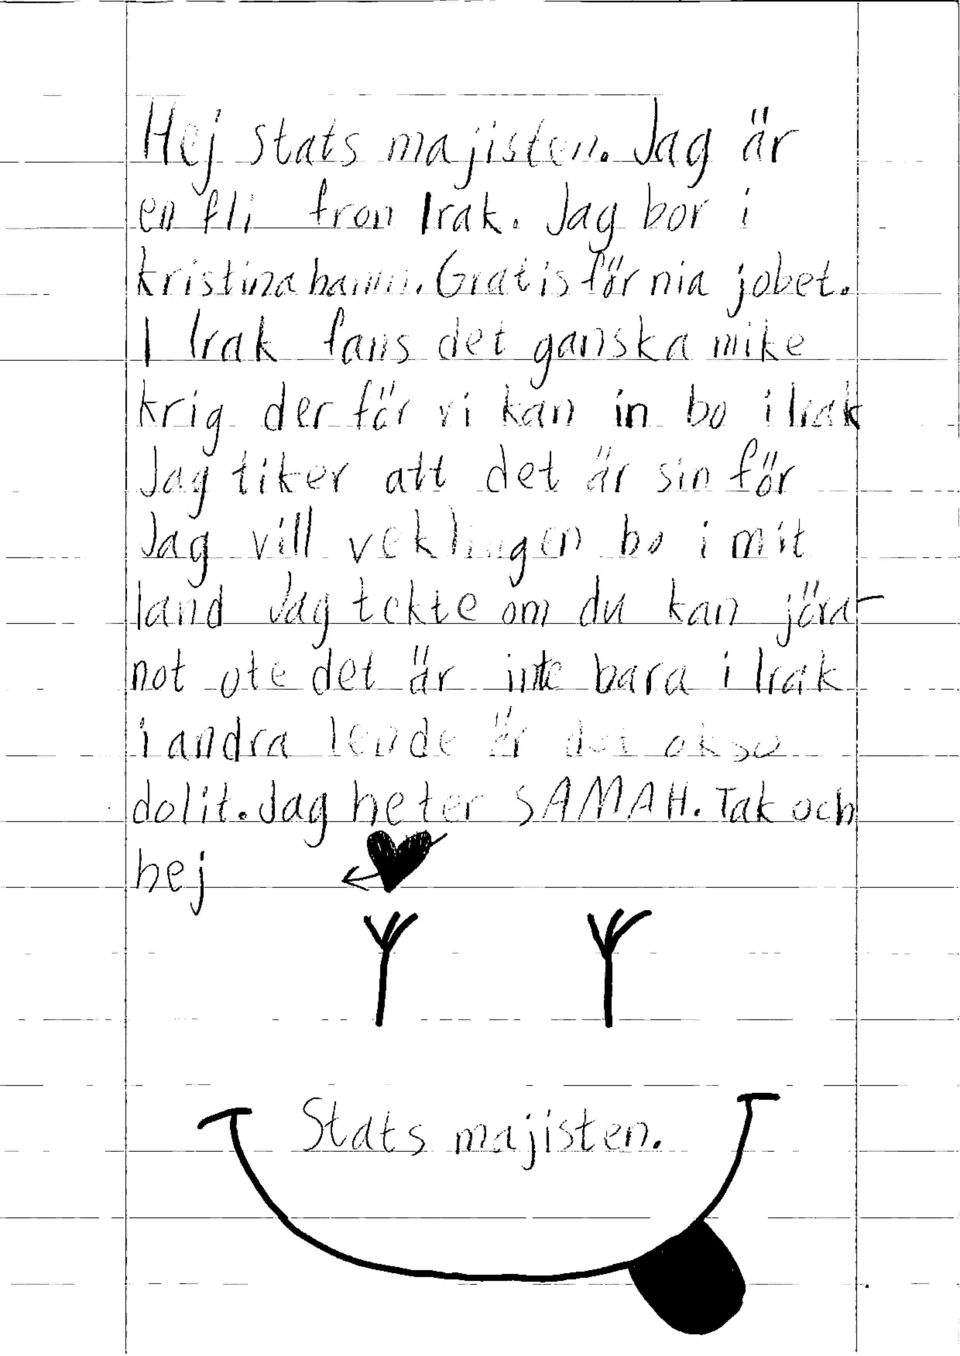 Hej stats majisten. Jag är
en fli fron Irak. Jag bor i
kristina hamn. Gratis för nia jobet.
I Irak fans det ganska mike
krig der för vi kan in bo i Irak
Jag tiker att det är sin för
Jag vill veklingen bo i mit
land Jag tekte om du kan jöra
not ote det är inte bara i Irak
i andra lende är det okso
dolit. Jag heter SAMAH. Tak och
hej
Stats majisten.